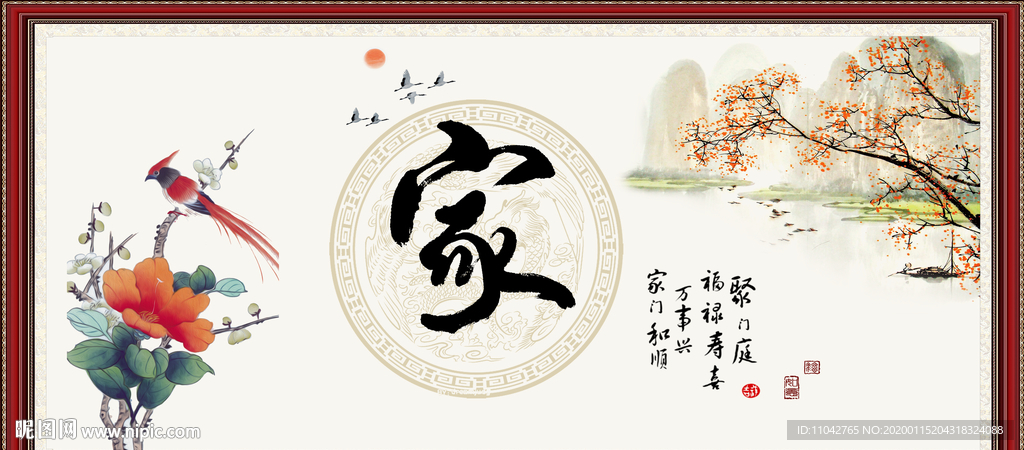 家
聚门庭
福禄寿喜
万事兴
家门和顺
昵图网 www.nipic.com
ID:11042765 NO:20200115204318324088